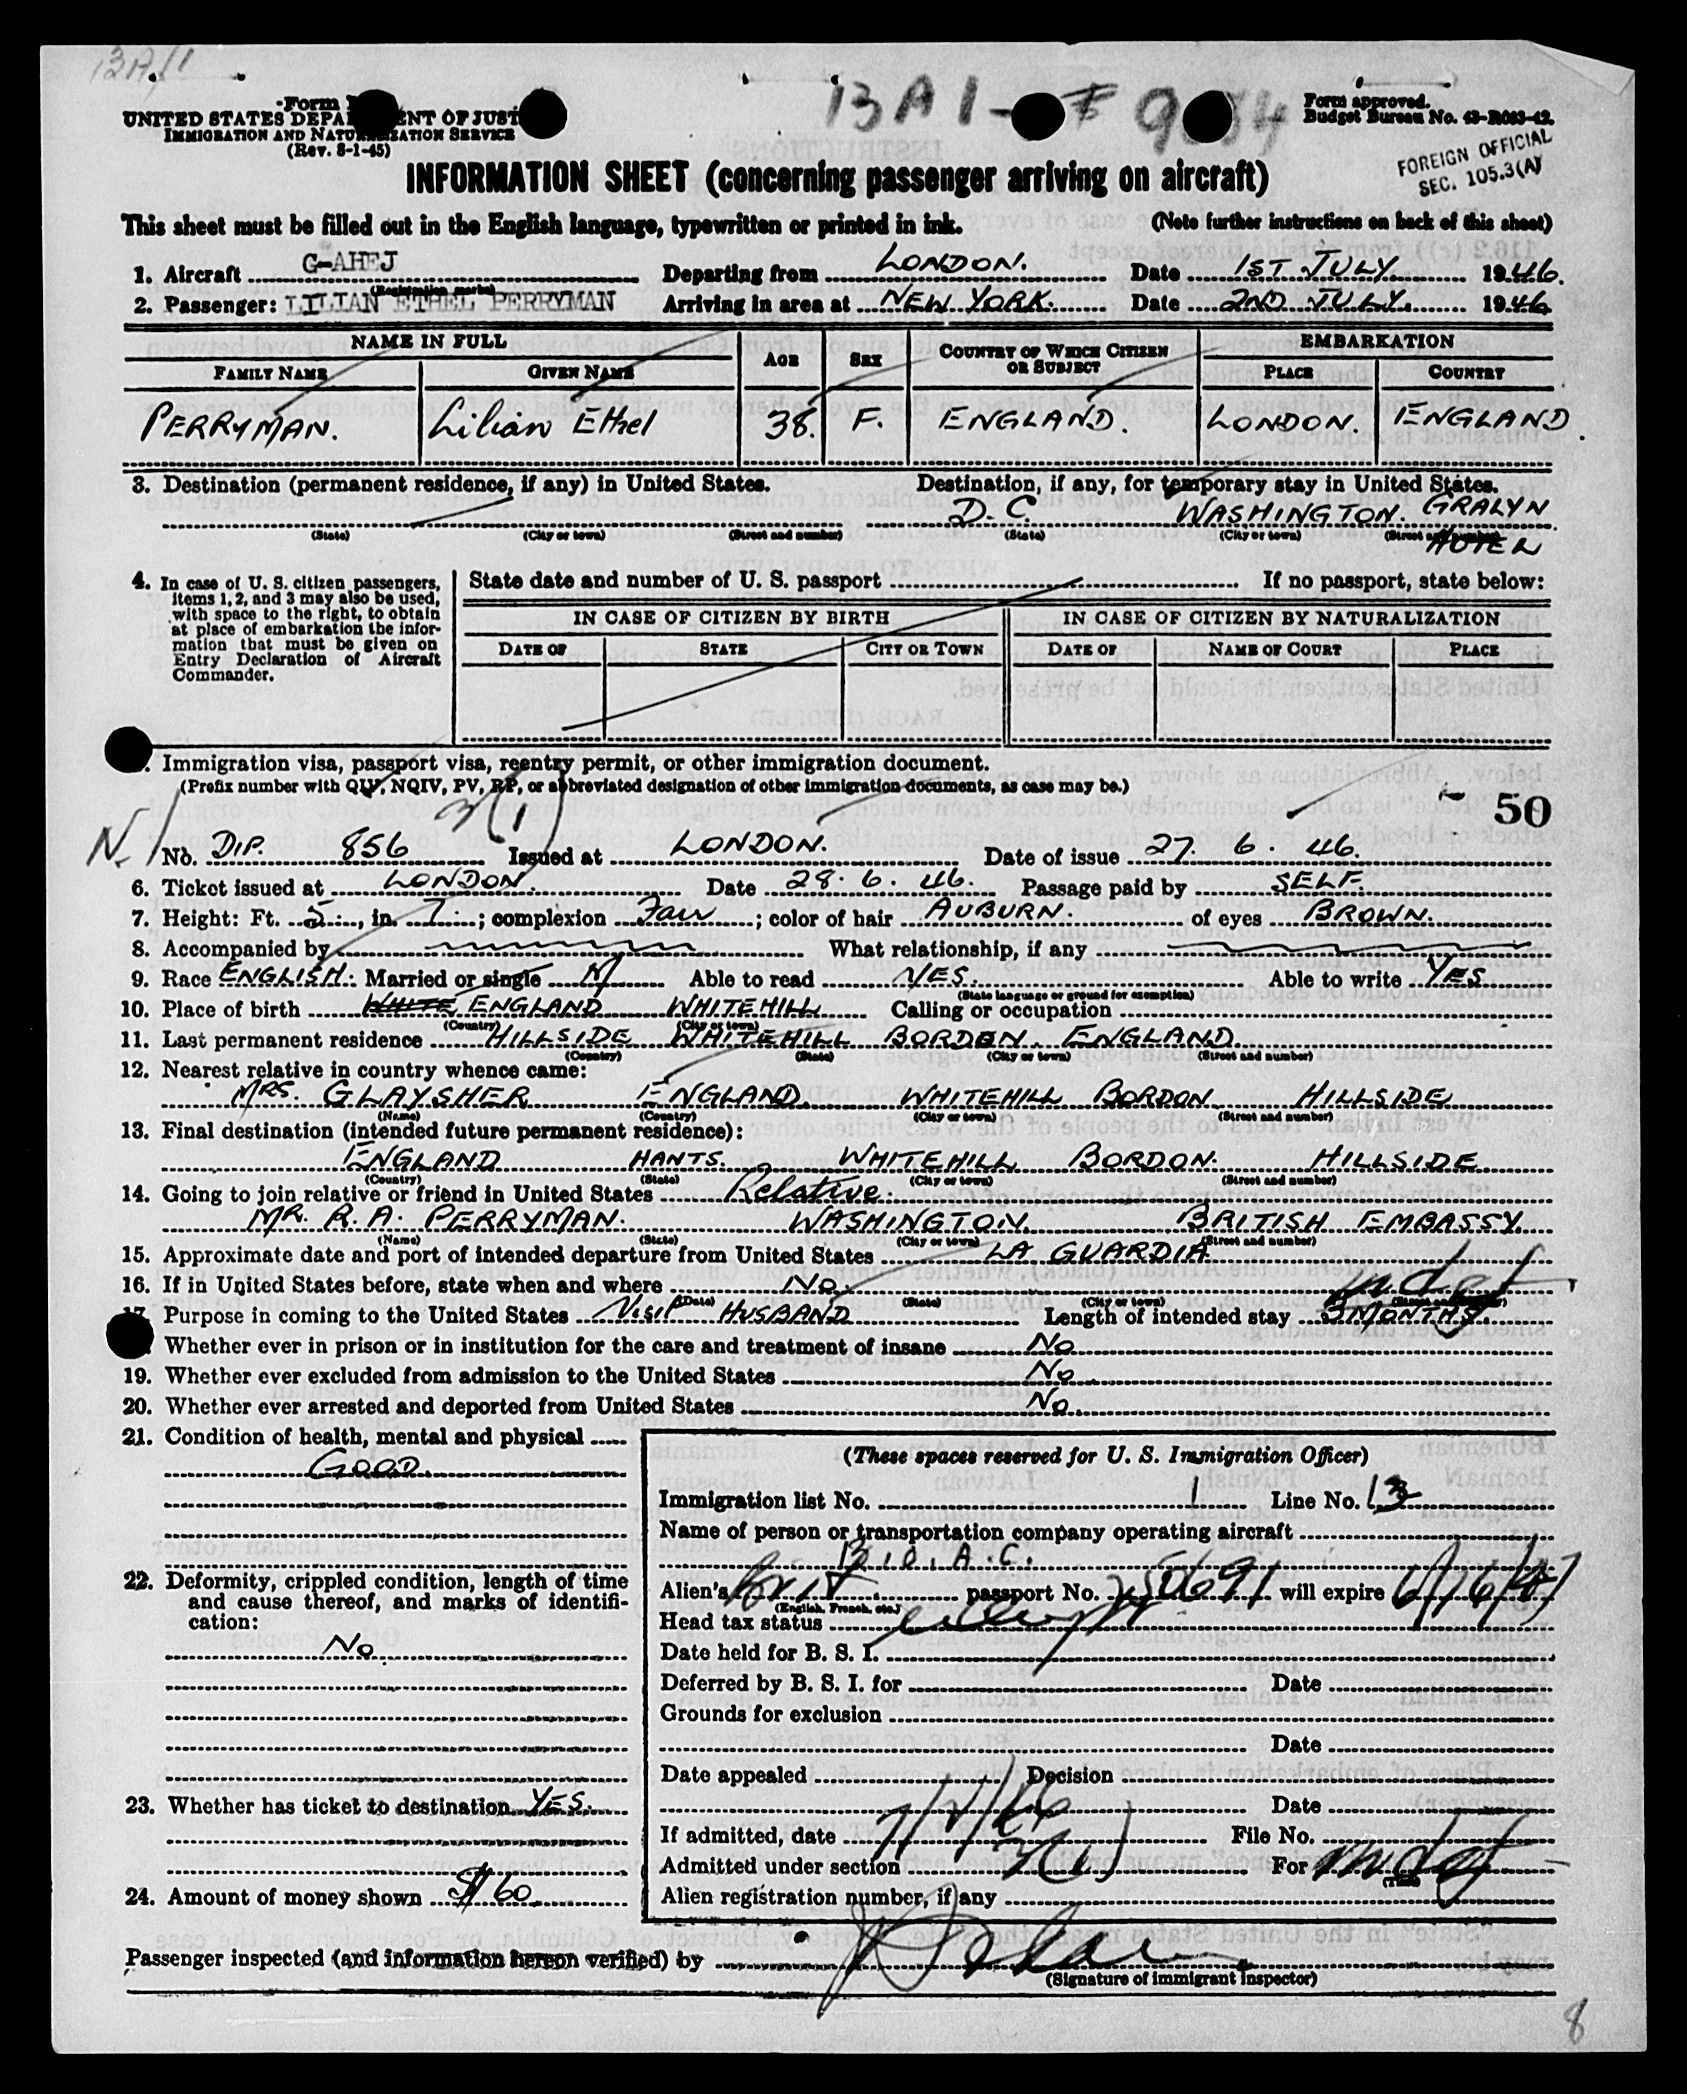 13A/1
13 A 1 -
Form
UNITED STATES DEPA ENT OF JUST
IMMIGRATION AND NATU ZATION SERVICE
(Rev. 8-1-45)
Form approved.
Budget Bureau No. 43-R083-42.
FOREIGN OFFICIAL
SEC. 105.3(A)
INFORMATION SHEET (concerning passenger arriving on aircraft)
This sheet must be filled out in the English language, typewritten or printed in ink. (Note further instructions on back of this sheet)
1. Aircraft G-AHEJ Departing from LONDON. Date 1ST JULY 1946.
(Registration marks)
2. Passenger: LILIAN ETHEL PERRYMAN Arriving in area at NEW YORK. Date 2ND JULY. 1946
NAME IN FULL AGE SEX COUNTRY OF WHICH CITIZEN OR SUBJECT EMBARKATION
FAMILY NAME GIVEN NAME PLACE COUNTRY
PERRYMAN. Lilian Ethel 38. F. ENGLAND. LONDON. ENGLAND.
3. Destination (permanent residence, if any) in United States. Destination, if any, for temporary stay in United States.
D.C. WASHINGTON. GRALYN HOTEL
(State) (City or town) (Street and number) (State) (City or town) (Street and number)
4. In case of U. S. citizen passengers,
items 1, 2, and 3 may also be used,
with space to the right, to obtain
at place of embarkation the infor-
mation that must be given on
Entry Declaration of Aircraft
Commander.
State date and number of U. S. passport If no passport, state below:
IN CASE OF CITIZEN BY BIRTH IN CASE OF CITIZEN BY NATURALIZATION
DATE OF STATE CITY OR TOWN DATE OF NAME OF COURT PLACE
Immigration visa, passport visa, reentry permit, or other immigration document.
(Prefix number with QIV, NQIV, PV, RP, or abbreviated designation of other immigration documents, as case may be.)
3(1)
50
N.
No. DIP. 856 Issued at LONDON. Date of issue 27. 6. 46.
6. Ticket issued at LONDON. Date 28. 6. 46. Passage paid by SELF.
7. Height: Ft. 5, in. 7; complexion Fair; color of hair AUBURN. of eyes BROWN.
8. Accompanied by What relationship, if any
9. Race ENGLISH. Married or single M Able to read YES. Able to write YES
(State language or ground for exemption)
10. Place of birth WHITE ENGLAND WHITEHILL Calling or occupation
(Country) (City or town)
11. Last permanent residence HILLSIDE WHITEHILL BORDON. ENGLAND.
(Country) (State) (City or town) (Street and number)
12. Nearest relative in country whence came:
MRS. GLAYSHER ENGLAND. WHITEHILL BORDON HILLSIDE
(Name) (Country) (City or town) (Street and number)
13. Final destination (intended future permanent residence):
ENGLAND HANTS. WHITEHILL BORDON. HILLSIDE
(Country) (State) (City or town) (Street and number)
14. Going to join relative or friend in United States Relative.
MR. R. A. PERRYMAN. WASHINGTON. BRITISH EMBASSY.
(Name) (State) (City or town) (Street and number)
15. Approximate date and port of intended departure from United States LA GUARDIA
16. If in United States before, state when and where No. indef
(Date) (State) (City or town) (Street and number)
17. Purpose in coming to the United States VISIT HUSBAND Length of intended stay 3 MONTHS.
Whether ever in prison or in institution for the care and treatment of insane No
19. Whether ever excluded from admission to the United States No
20. Whether ever arrested and deported from United States No
21. Condition of health, mental and physical
GOOD.
22. Deformity, crippled condition, length of time
and cause thereof, and marks of identifi-
cation:
No
23. Whether has ticket to destination YES.
24. Amount of money shown $60
(These spaces reserved for U. S. Immigration Officer)
Immigration list No. 1 Line No. 13
Name of person or transportation company operating aircraft
B.O.A.C.
Alien's Brit passport No. will expire 6/16/47
(English, French, etc.)
Head tax status
Date held for B. S. I.
Deferred by B. S. I. for Date
Grounds for exclusion
Date
Date appealed Decision
Date
If admitted, date 7/2/46 File No.
Admitted under section 3(1) For indef
(Time)
Alien registration number, if any
Passenger inspected (and information hereon verified) by
(Signature of immigrant inspector)
8